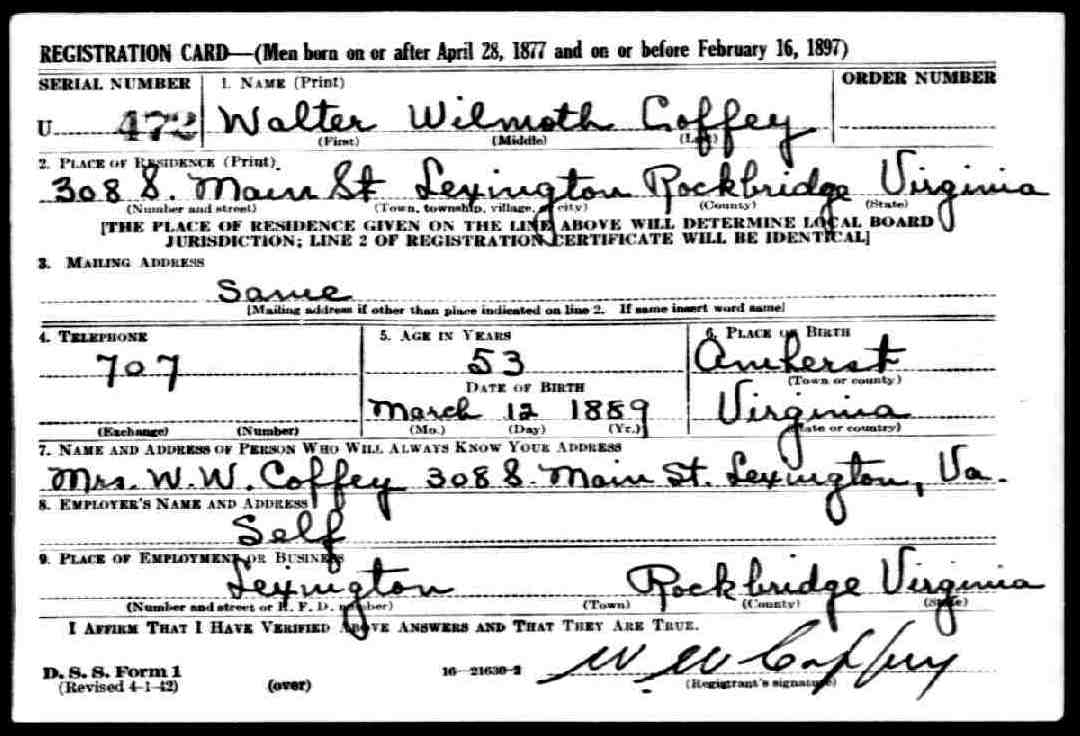 REGISTRATION CARD—(Men born on or after April 28, 1877 and on or before February 16, 1897)
SERIAL NUMBER 1. NAME (Print) ORDER NUMBER
U 472 Walter Wilmoth Coffey
(First) (Middle) (Last)
2. PLACE OF RESIDENCE (Print)
308 S. Main St Lexington Rockbridge Virginia
(Number and street) (Town, township, village, or city) (County) (State)
[THE PLACE OF RESIDENCE GIVEN ON THE LINE ABOVE WILL DETERMINE LOCAL BOARD
JURISDICTION; LINE 2 OF REGISTRATION CERTIFICATE WILL BE IDENTICAL]
3. MAILING ADDRESS
Same
[Mailing address if other than place indicated on line 2. If same insert word same]
4. TELEPHONE 5. AGE IN YEARS 6. PLACE OF BIRTH
707 53 Amherst
DATE OF BIRTH (Town or county)
March 12 1889 Virginia
(Exchange) (Number) (Mo.) (Day) (Yr.) (State or country)
7. NAME AND ADDRESS OF PERSON WHO WILL ALWAYS KNOW YOUR ADDRESS
Mrs. W. W. Coffey 308 S. Main St. Lexington, Va.
8. EMPLOYER'S NAME AND ADDRESS
Self
9. PLACE OF EMPLOYMENT OR BUSINESS
Lexington Rockbridge Virginia
(Number and street or R. F. D. number) (Town) (County) (State)
I AFFIRM THAT I HAVE VERIFIED ABOVE ANSWERS AND THAT THEY ARE TRUE.
D. S. S. Form 1 16—21630-2 W. W Coffey
(Revised 4-1-42) (over) (Registrant's signature)